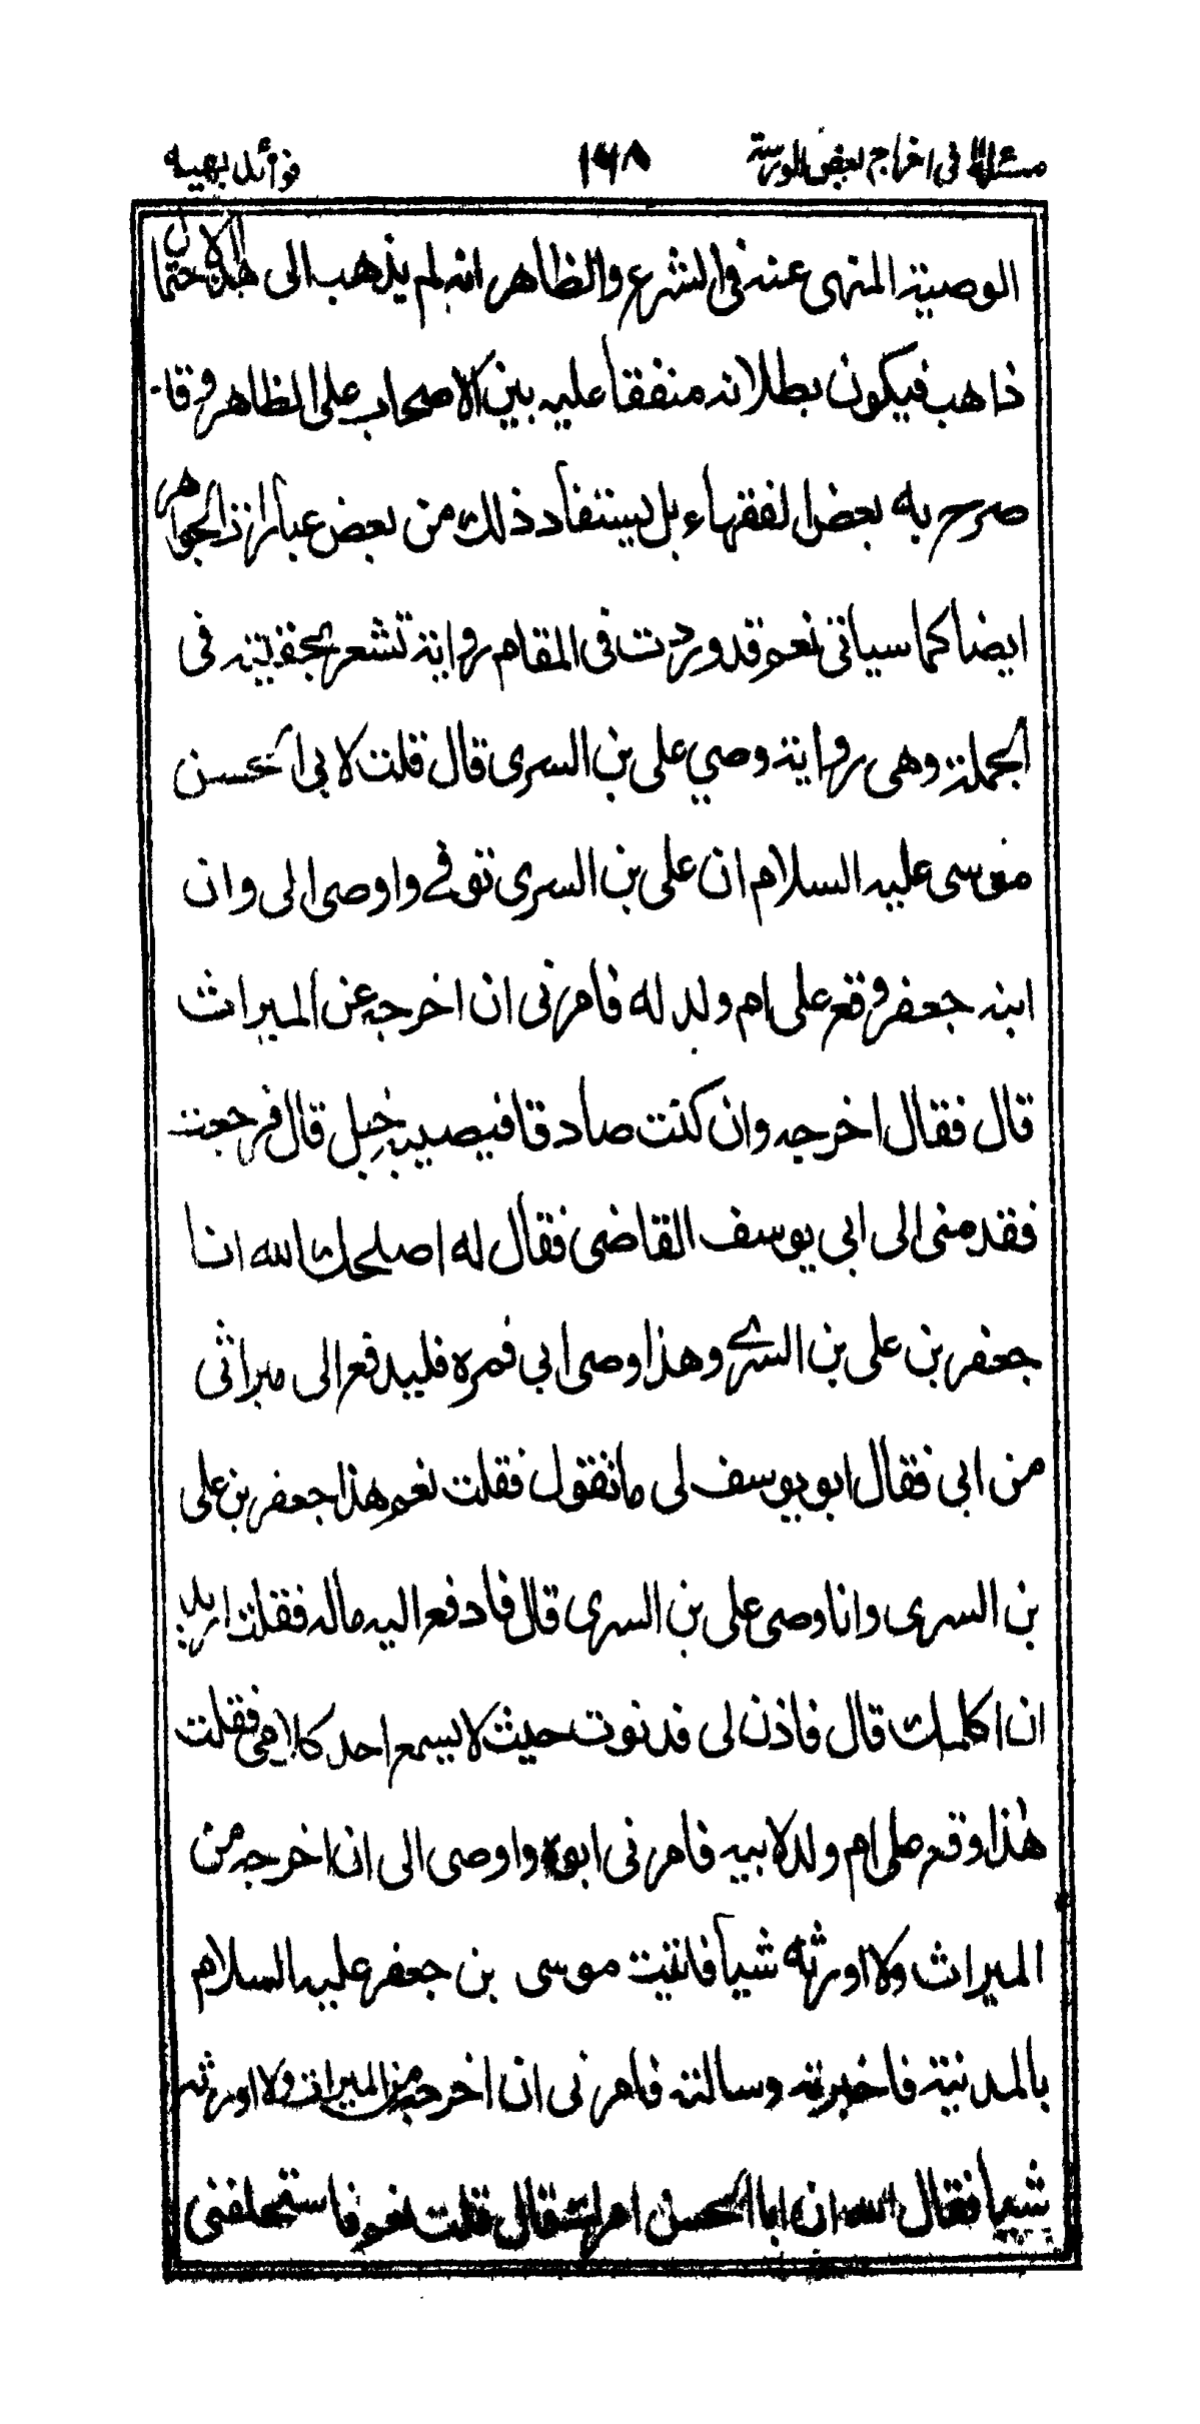 مسئلة في اخراج بعض الورثة ١٦٨ فوائد بهيه
الوصية المنهى عنه فى الشرع والظاهر انه لم يذهب الى هذا الاحتمال
ذاهب فيكون بطلانه متفقا عليه بين الاصحاب على الظاهر وقد
صرح به بعض الفقهاء بل يستفاد ذلك من بعض عبارات الجواهر
ايضا كما سياتى نعم قد وردت فى المقام رواية تشعر بحقيته فى
الجملة وهى رواية وصي على بن السرى قال قلت لابى الحسن
موسى عليه السلام ان على بن السرى توفے واوصى الى وان
ابنه جعفر وقع على ام ولد له فامرنى ان اخرجه عن الميراث
قال فقال اخرجه وان كنت صادقا فيصيبه خبل قال فرجعت
فقدمنى الى ابى يوسف القاضى فقال له اصلحك الله انا
جعفر بن على بن السرے وهذا وصى ابى فمره فليدفع الى ميراثى
من ابى فقال ابو يوسف لى ما تقول فقلت نعم هذا جعفر بن على
بن السرى وانا وصى على بن السرى قال فادفع اليه ماله فقلت اريد
ان اكلمك قال فاذن لى فدنوت حيث لا يسمع احد كلامى فقلت
هذا وقع على ام ولد لابيه فامرنى ابوه واوصى الى ان اخرجه من
الميراث ولا اورثه شيأ فاتيت موسى بن جعفر عليه السلام
بالمدينة فاخبرته وسالته فامرنى ان اخرجه من الميراث ولا اورثه
شيأ فقال الله ان ابا الحسن امرك قال قلت نعم فاستحلفنى